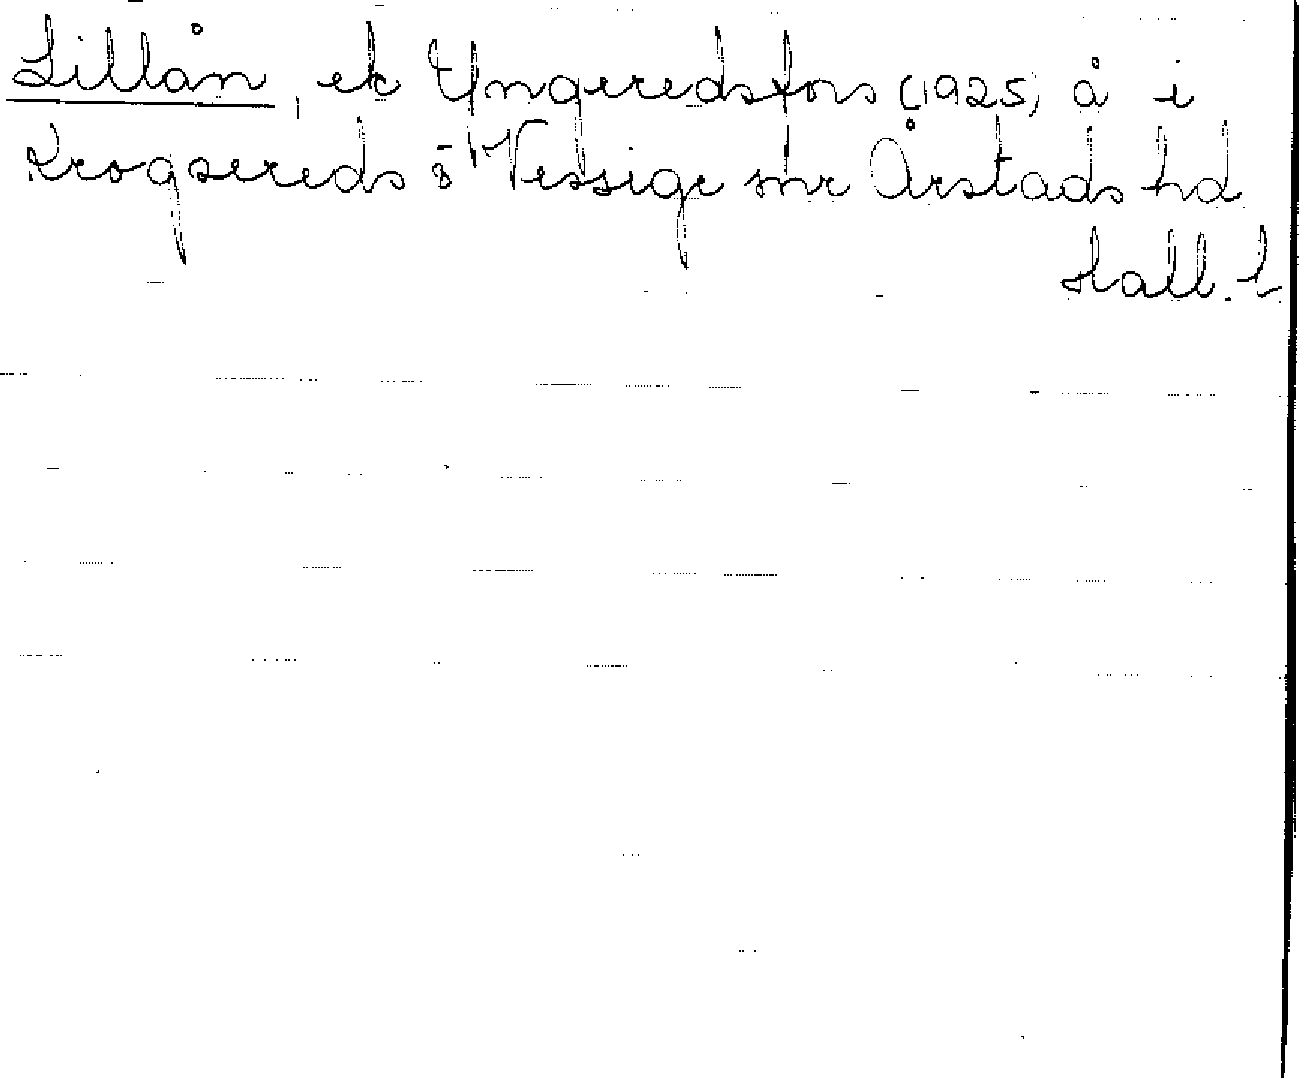 Lillån, ek Yngeredsfors (1925) å i
Krogsereds o Vessige snr Årstads hd
Hall. l